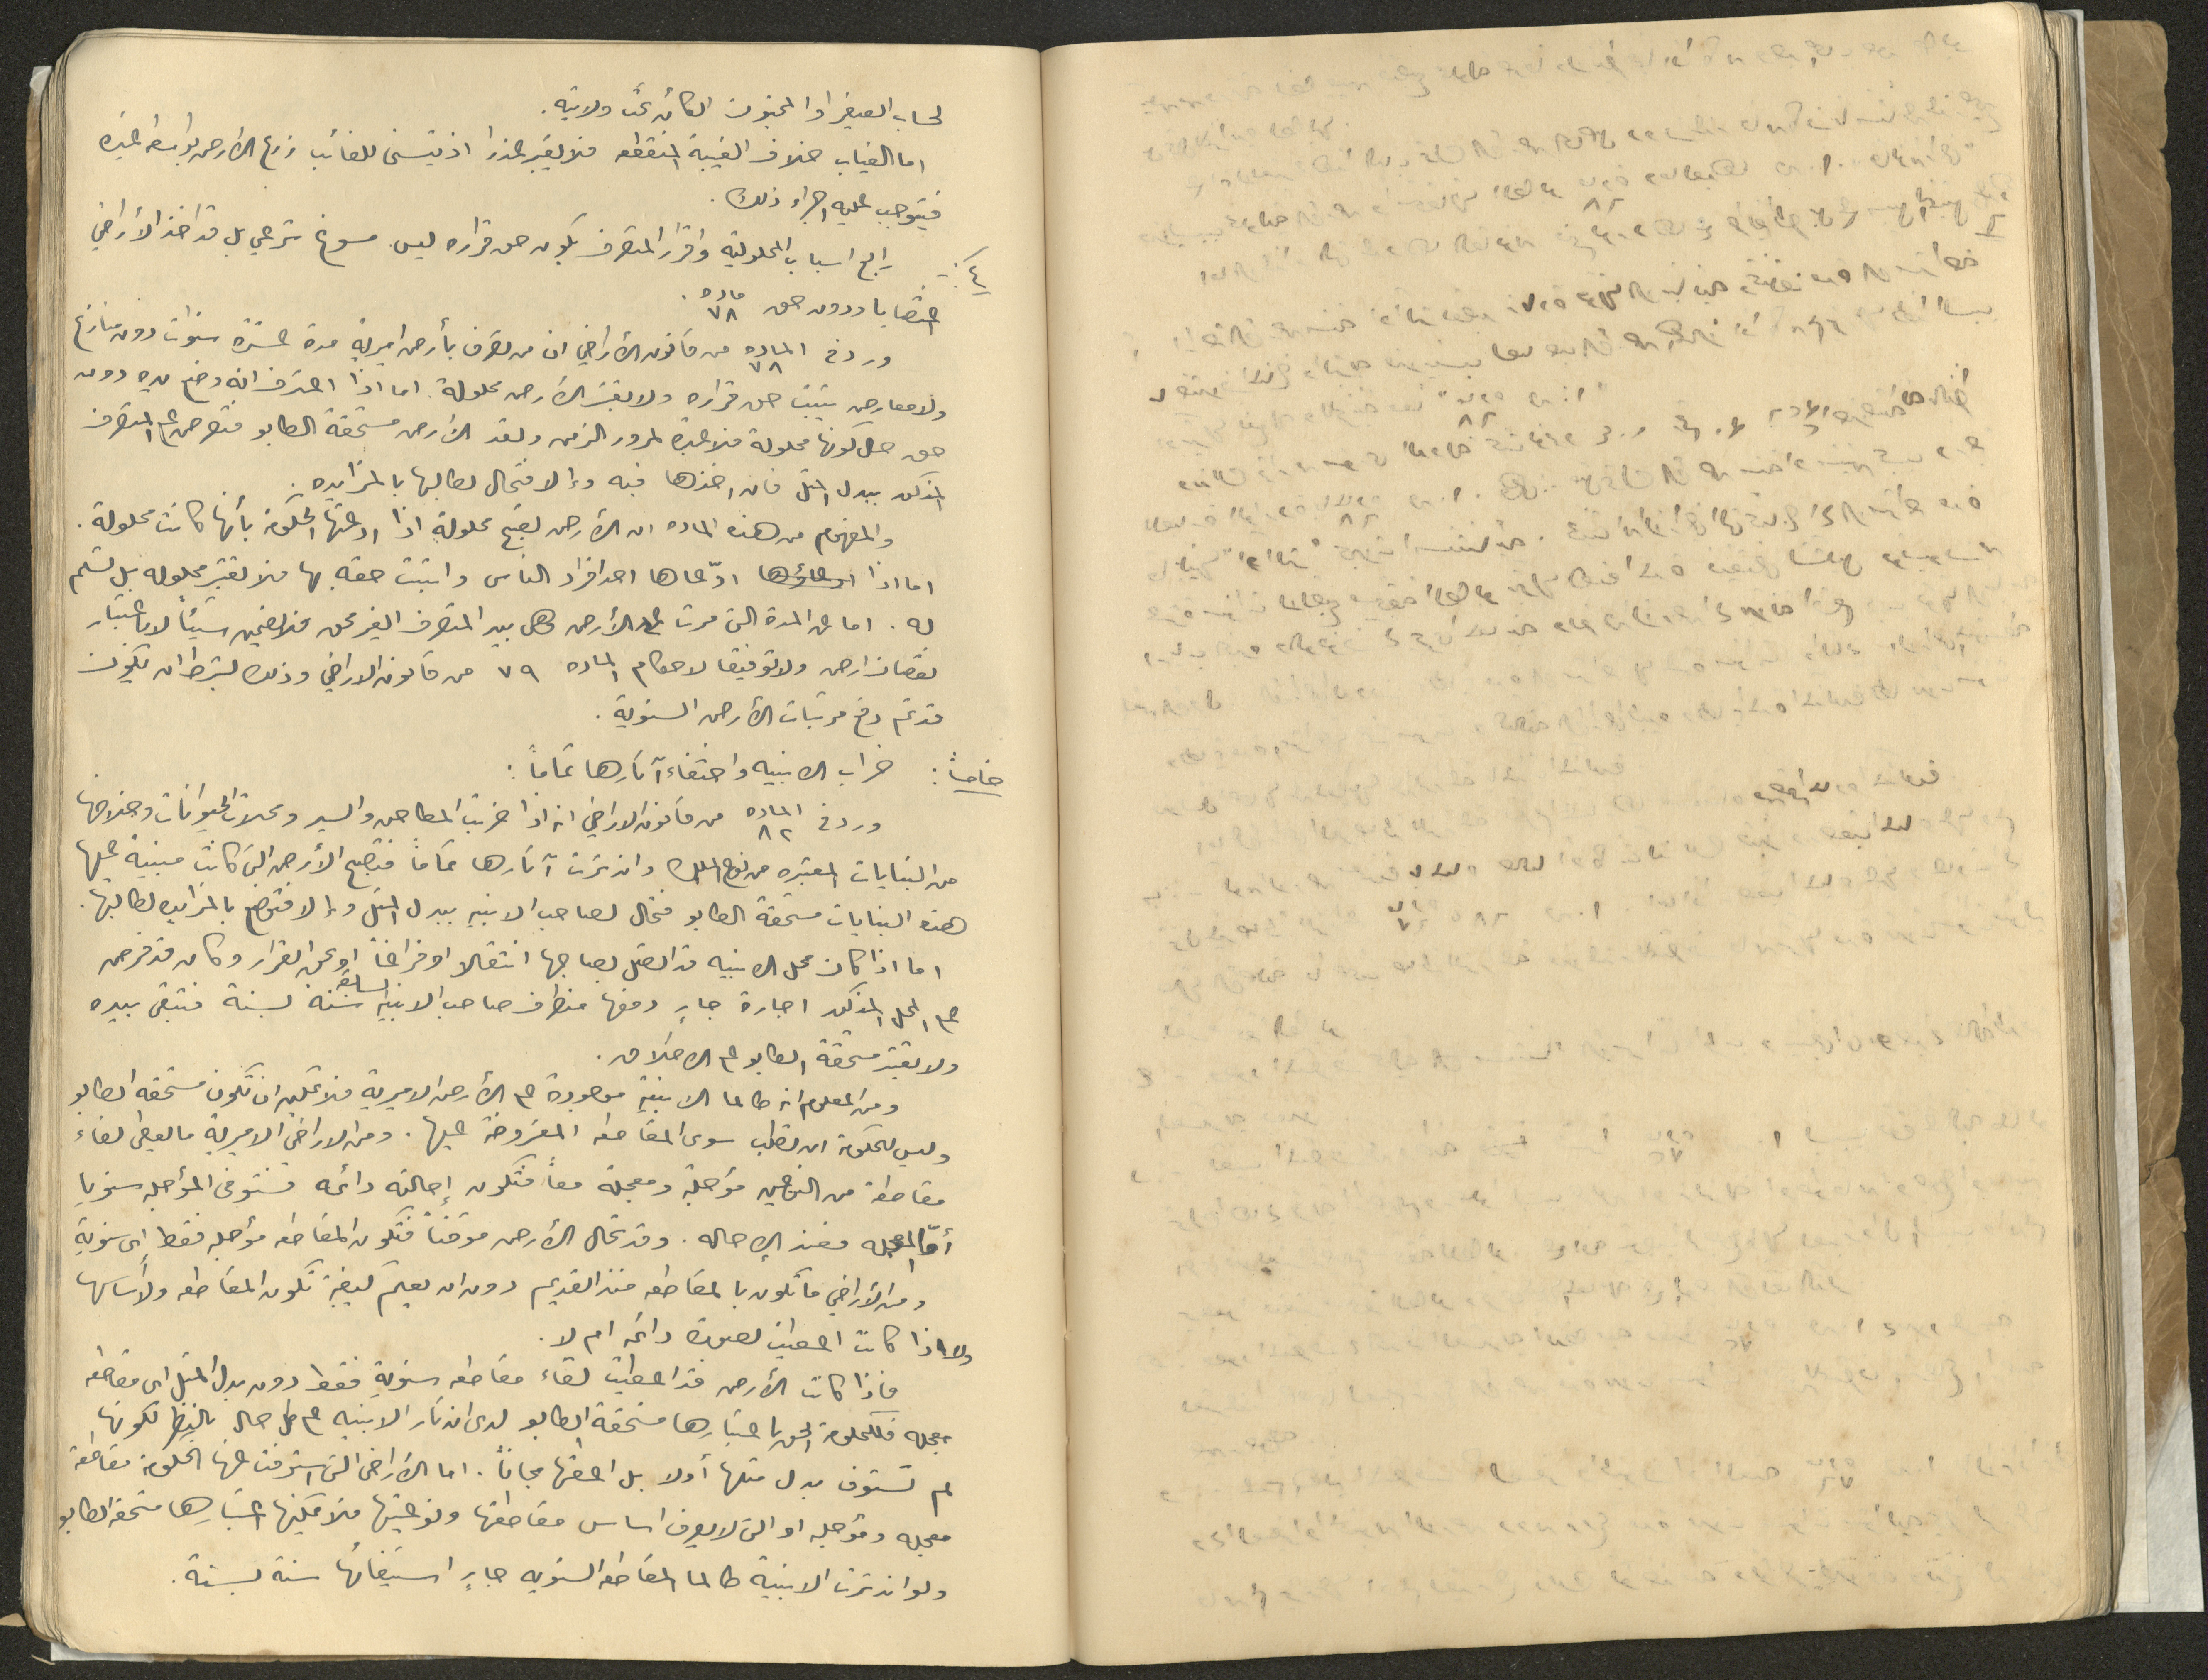 لحساب الصغير او المجنون الكائن تحت ولايته.
اما الغياب خلاف الغيبة المنقطعه فلا يعتبر عذرا اذ يتسنى للغائب زرع الأرض بواسطة غيره
فيتوجب عليه اجراء ذلك.
٤ :- رابع اسباب المحلولية واقرار المتصرف بكون حق قراره ليس مسوغ شرعي بل قد اخذ الأراضي
اغتصابا وبدون حق ماده ٧٨.
ورد في الماده ٧٨ من قانون الأراضي ان من تصرف بأرض اميرية مدة عشرة سنوات دون منازع
ولا معارض يثبت حق قراره ولا تعتبر الأرض محلولة. اما اذا اعترف انه وضع يده دون
حق حال كونها محلولة فلا عبرة لمرور الزمن وتعد الأرض مستحقة الطابو فتعرض على المتصرف
المذكور ببدل المثل فان اخذها فبه وإلا فتحال لطالبها بالمزايده.
والمفهوم من هذه الماده ان الأرض تصبح محلولة اذا ادعتها الحكومة بأنها كانت محلولة.
اما اذا ادّعاها احد افراد الناس واثبت حقه بها فلا تعتبر محلوله بل تسلم
له. اما عن المدة التي مرت على الأرض وهي بيد المتصرف الغير محق فلا يضمن شيئاً لا باعتبار
نقصان ارض ولا توفيقا لاحكام الماده ٧٩ من قانون الاراضي وذلك بشرط ان يكون
قد تم دفع مرتبات الأرض السنوية.
خامساً: خراب الابنيه واختفاء آثارها تماماً:
ورد في الماده ٨٢ من قانون الاراضي انه اذا خربت المطاحن والسير ومحلات الحيوانات وخلافها
من البنايات المعتبره من نوع الملك واندثرت آثارها تماماً فتصبح الأرض التي كانت مبنية عليها
هذه البنايات مستحقة الطابو فتحال لصاحب الابنيه ببدل المثل وإلا فتوضع بالمزايده لطالبها.
اما اذا كان محل الابنيه قد اتصل لصاحبها انتقالا او فراغاً او بحق القرار وكان قد فرض
على المحل المذكور اجارة جارٍ دفعها من طرف صاحب الابنيه السابقه سنة لسنة فتبقى بيده
ولا تعتبر مستحقة الطابو على الاطلاق.
ومن المعلوم انه طالما الابنية موجودة على الأرض الاميرية فلا يمكن ان تكون مستحقه الطابو
وليس للحكومة ان تطلب سوى المقاطعه المفروضة عليها. ومن الاراضي الاميرية ما يعطى لقاء
مقاطعة من النوعين مؤجلة ومعجلة معاً فتكون إحالته دائمه فتستوفى المؤجله سنويا
أمّا المعجله فعند الإحاله. وقد تحال الأرض موقتاً فتكون المقاطعه مؤجله فقط اي سنوية
ومن الأراضي ما تكون بالمقاطعه منذ القديم دون ان يعلم كيفية تكون المقاطعه ولا أساسها
ولا اذا كانت اعطيت بصورة دائمه ام لا.
فاذا كانت الأرض قد اعطيت لقاء مقاطعه سنوية فقط دون بدل المثل اي مقاطعه
معجله فللحكومة الحق باعتبارها مستحقة الطابو لدى اندثار الابنيه على كل حال بالنظر لكونها
لم تستوف بدل مثلها أولا بل اعطتها مجاناً. اما الأراضي التي استوفت عنها الحكومة مقاطعة
معجله ومؤجله او التي لا يعرف اساس مقاطعتها ونوعيتها فلا يمكنها اعتبارها مستحقة الطابو
ولو اندثرت الابنية طالما المقاطعه السنويه جارٍ استيفائها سنة لسنة.